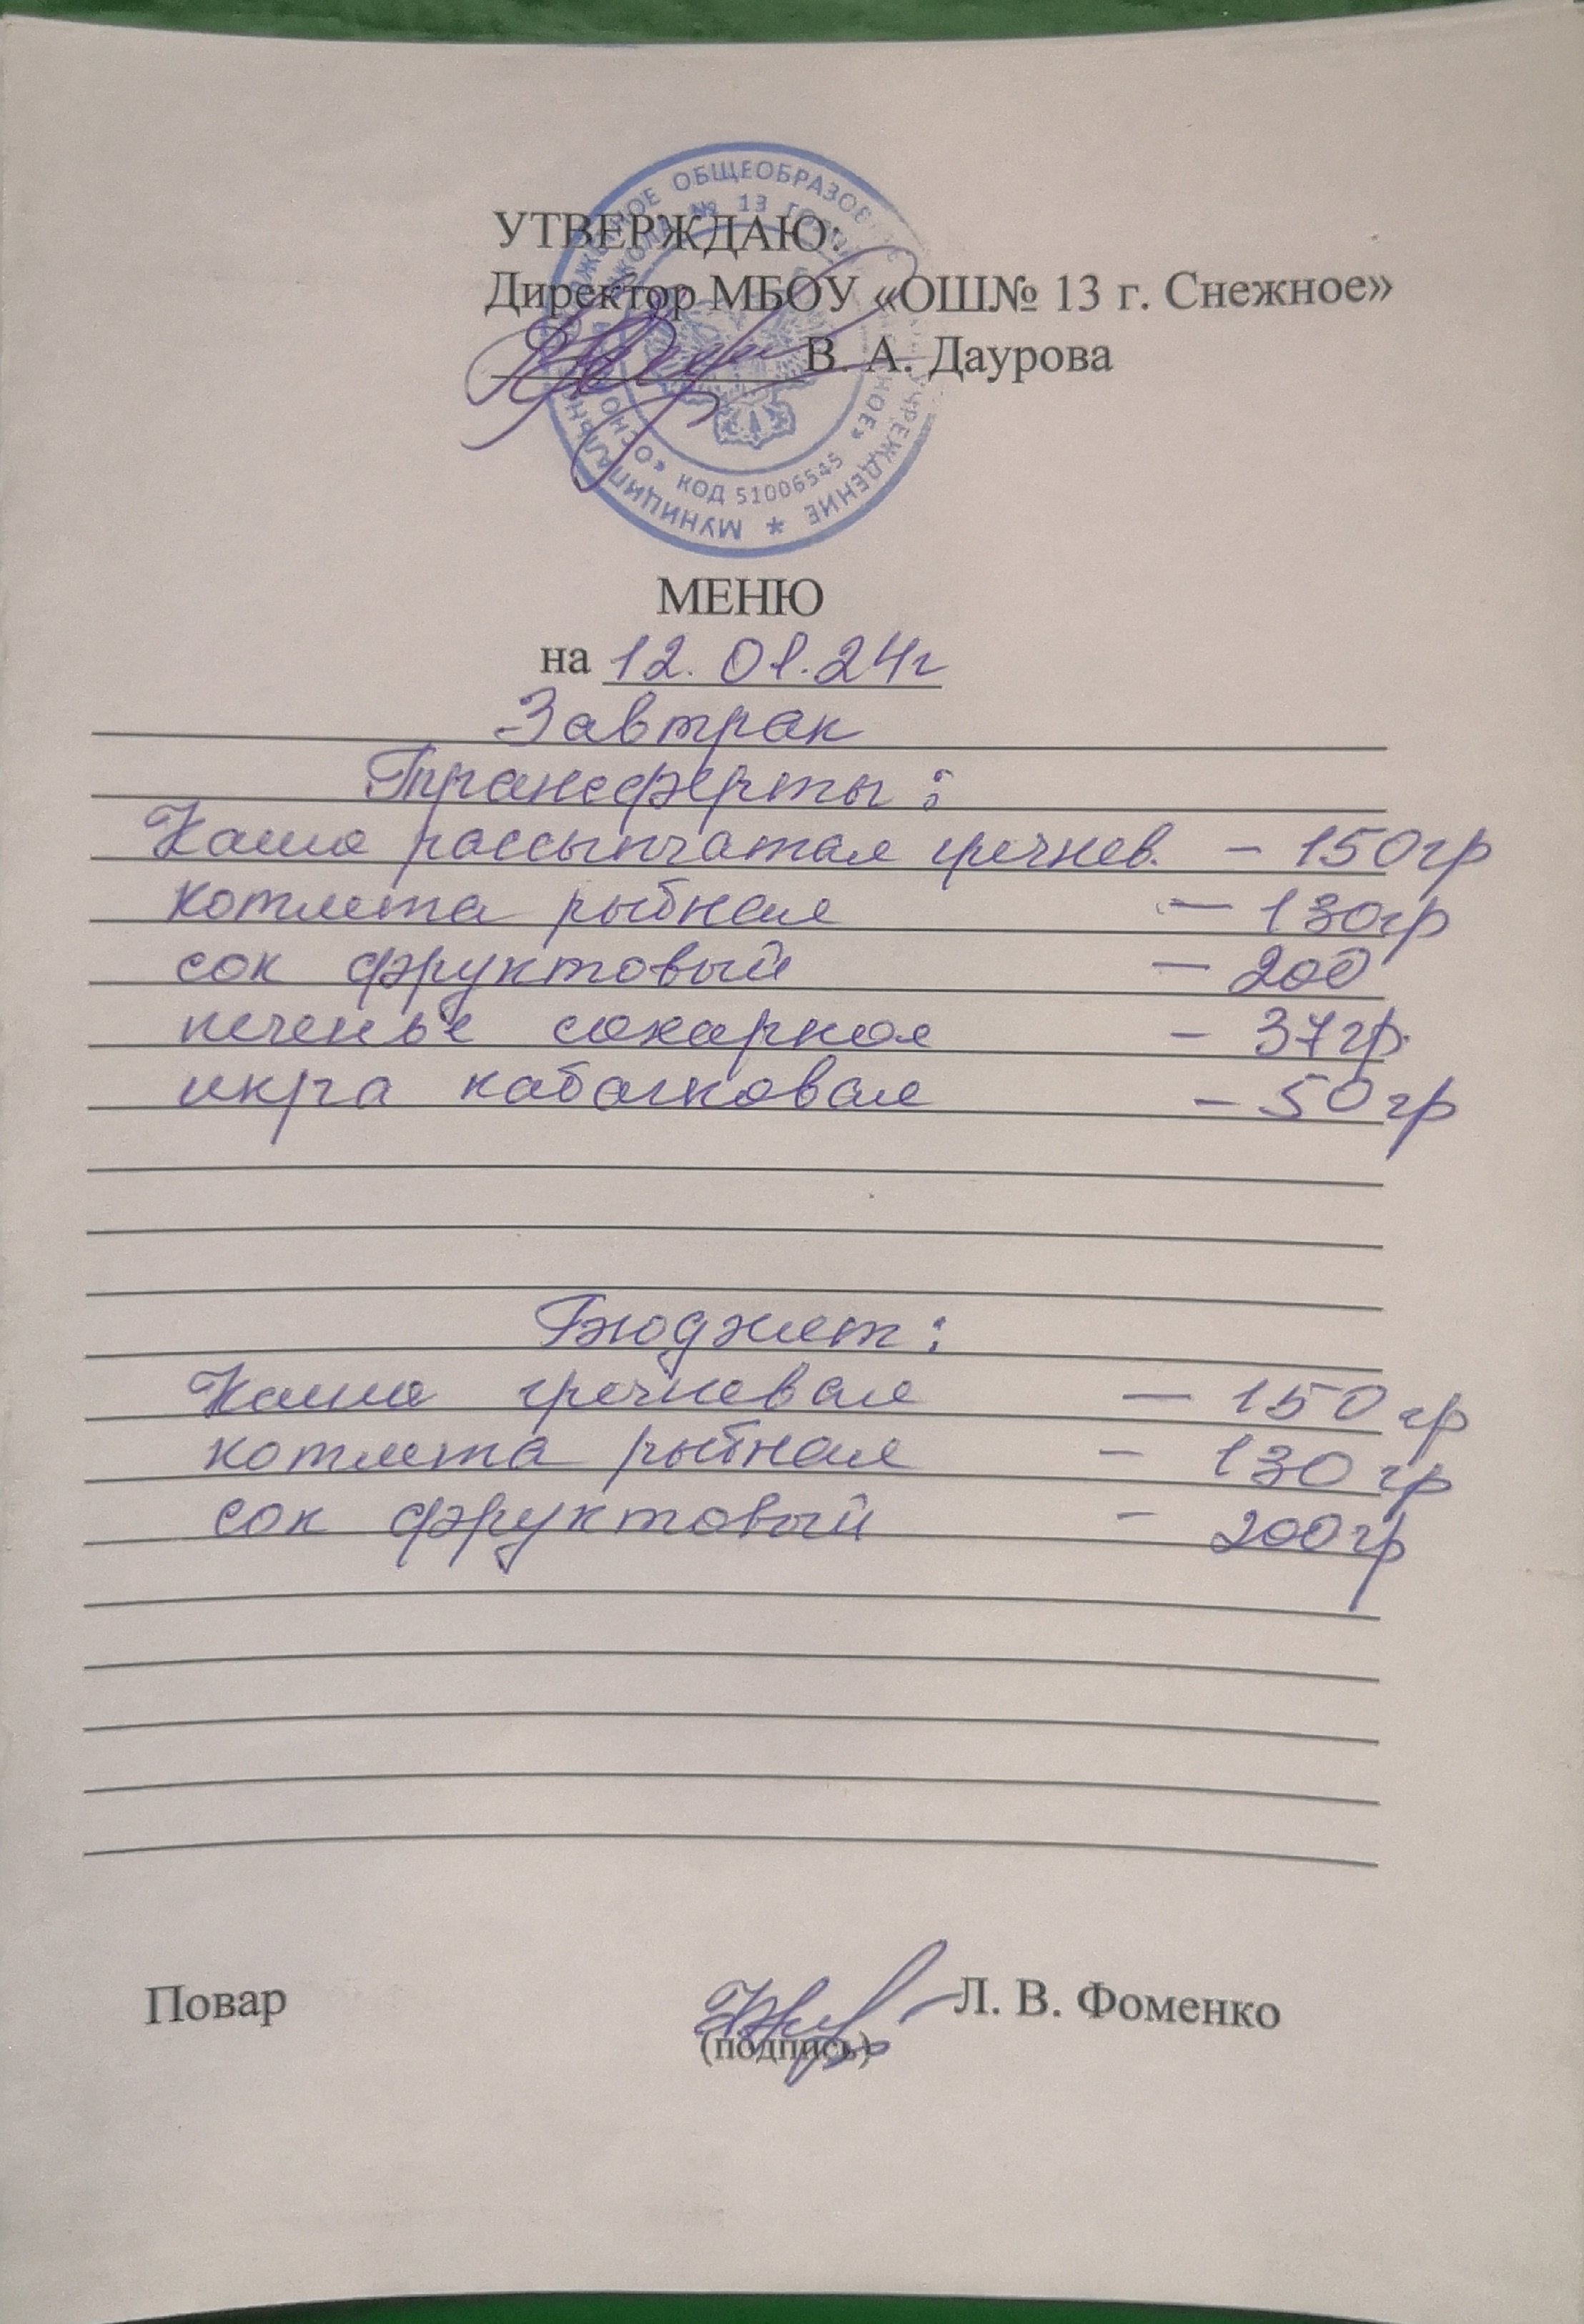 УТВЕРЖДАЮ:
Директор МБОУ «ОШ№ 13 г. Снежное»
В. А. Даурова
ОБЩЕОБРАЗОВ
№ 13
КОД 51006545
МУНИЦИПАЛЬН
УЧРЕЖДЕНИЕ
МЕНЮ
на 12.01.24г
Завтрак
Трансферты:
Каша рассыпчатая гречнев. - 150гр
котлета рыбная - 130гр
сок фруктовый - 200
печенье сахарное - 37гр.
икра кабачковая - 50гр
Бюджет:
Каша гречневая - 150гр
котлета рыбная - 130гр
сок фруктовый - 200гр
Повар Л. В. Фоменко
(подпись)